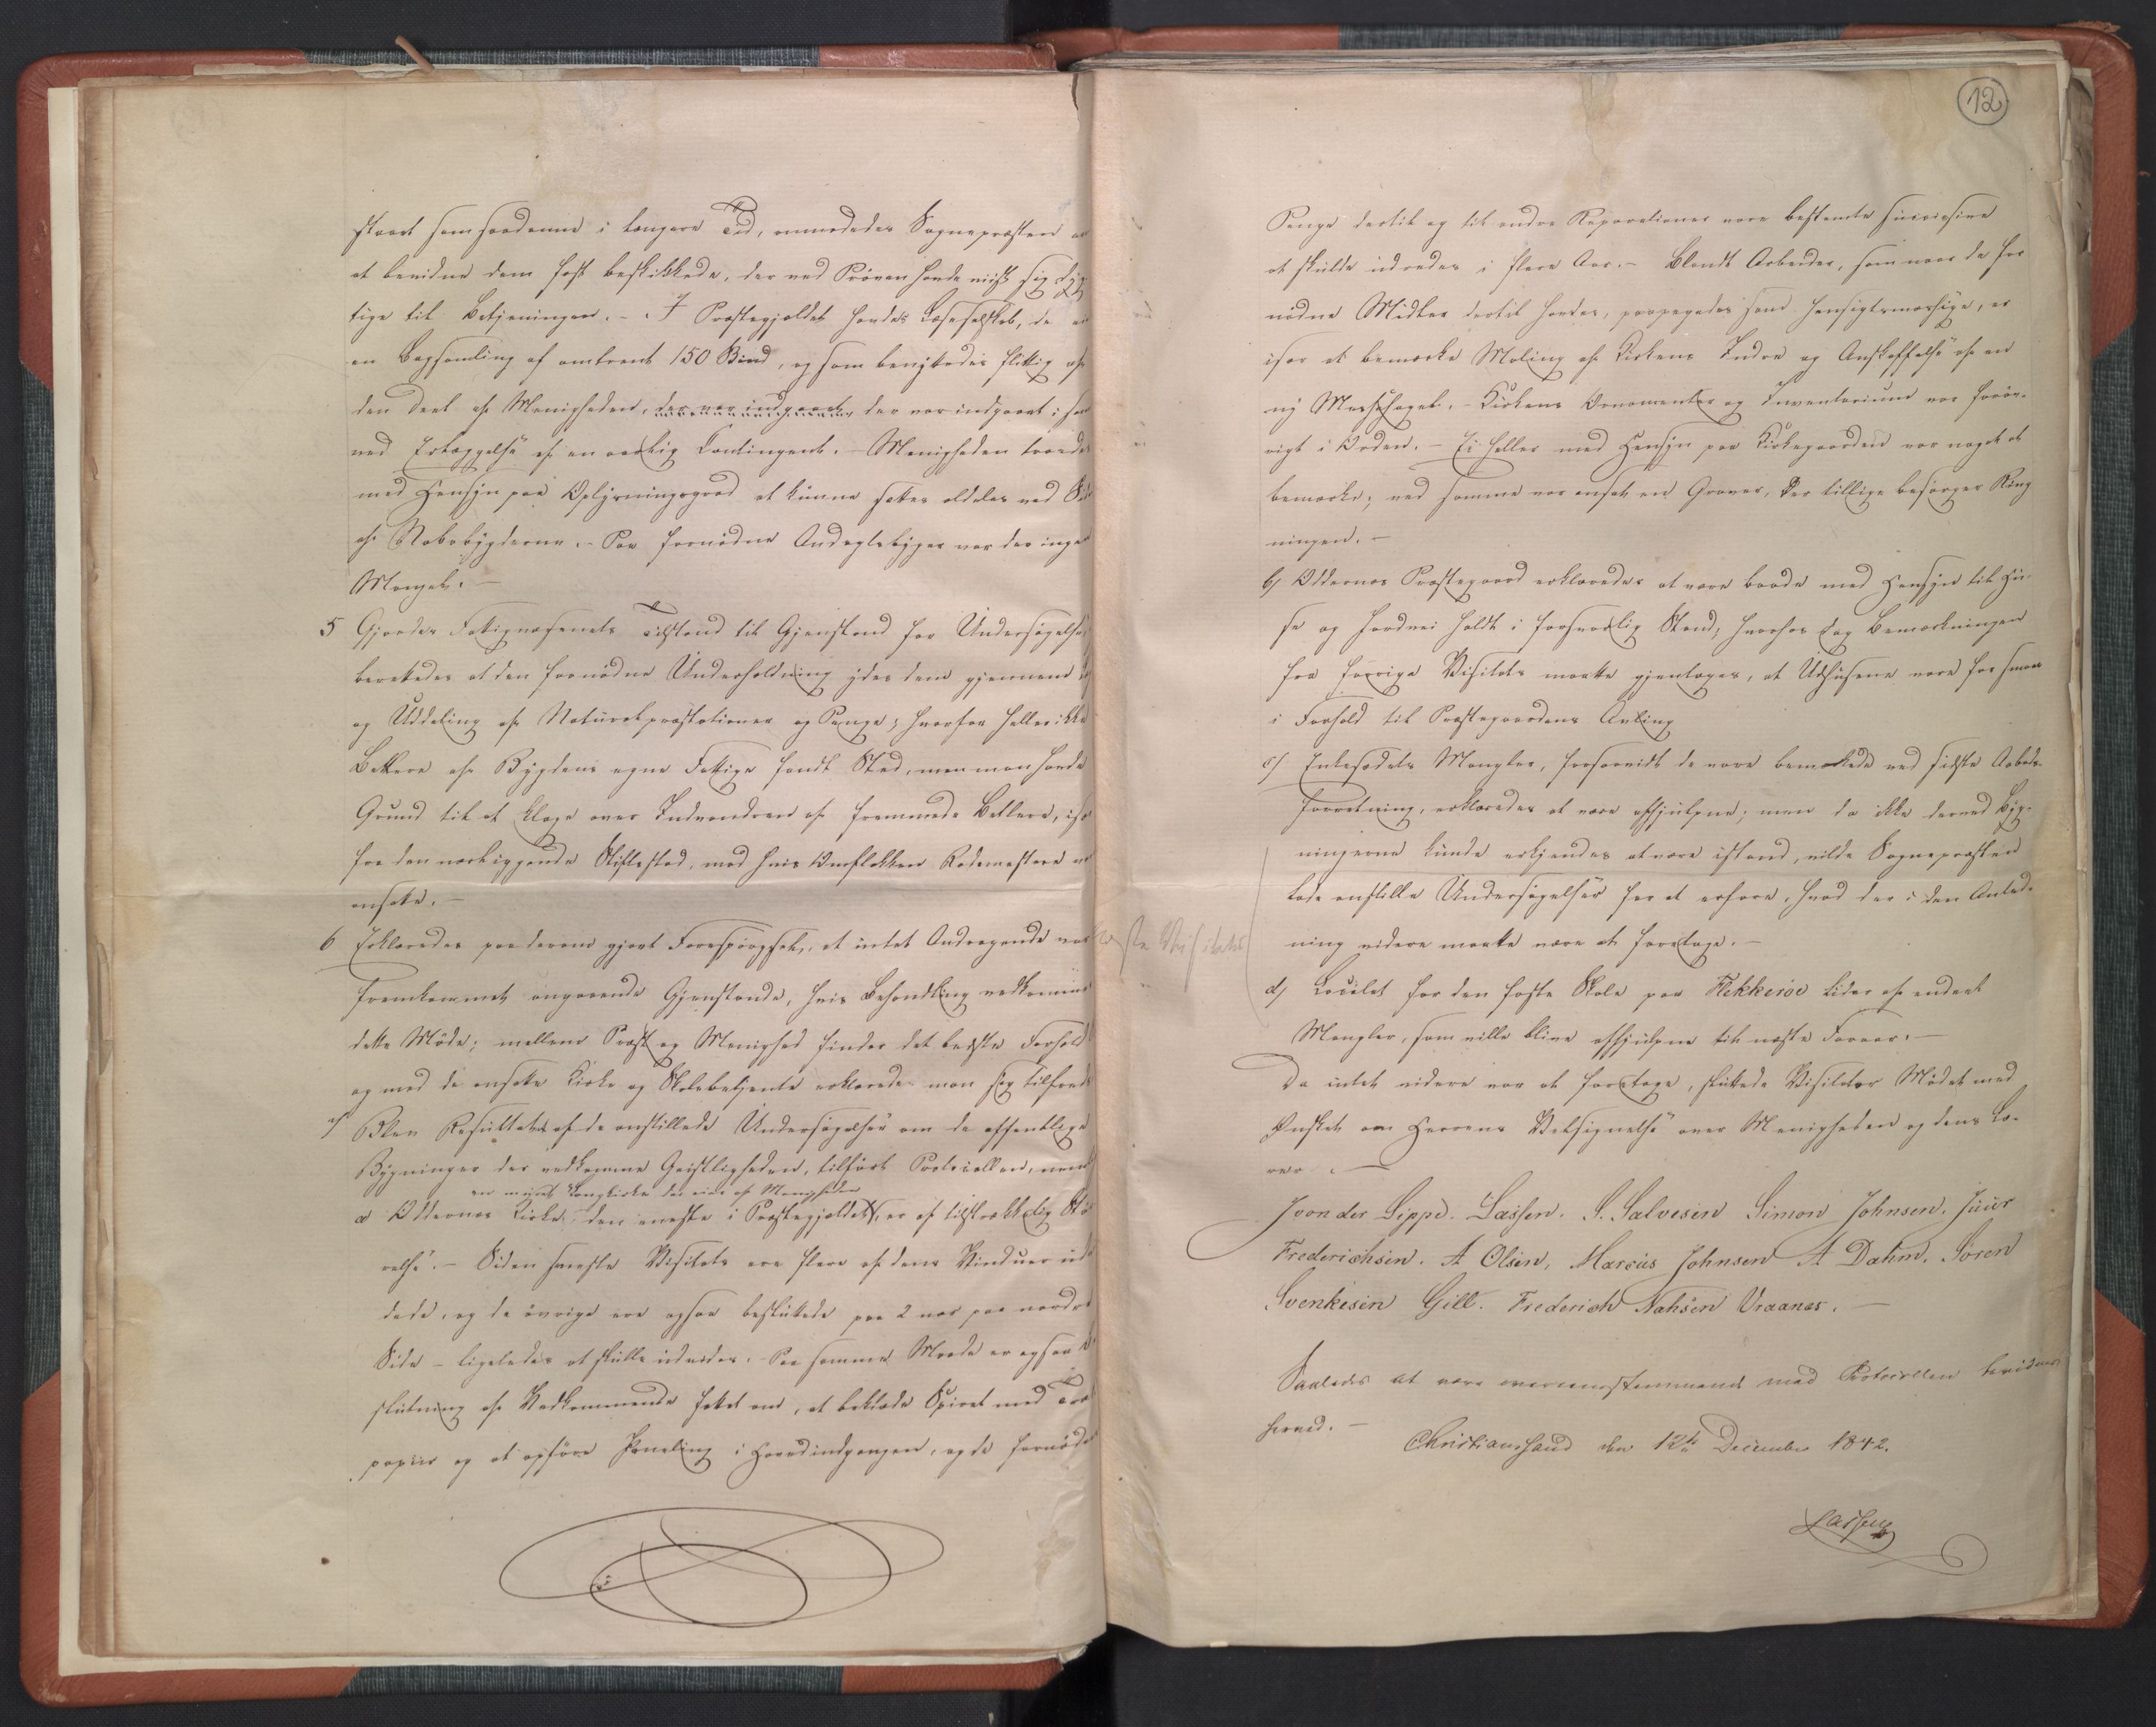 staaet som saadanne i længere Tid, anmodedes Sognepræsten om
at bevidne dem fast beskikkede, der ved Prøven havde viist sig dyg-
tige til Betjeningen. – I Præstegjældet havdes Læseselskab, der
en Bogsamling af omtrent 150 Bind, og som benyttedes flittig af
den Deel af Menigheden, der var indgaaet, der var indgaaet i
ved Erlæggelse af en aarlig Contingent. – Menigheden troedes
med Hensyn paa Oplysningsgrad at kunne sættes aldeles ved Side
af Nabobygderne. – Paa fornødne Andagtsbøger var der ingen
Mangel. –
5 Gjordes Fattigvæsenets Tilstand til Gjenstand for Undersøgelse
berettedes at den fornødne Underholdning ydes dem gjennem
og Uddeling af Naturalpræstationer og Penge; hvorfor heller ikke
Betlere af Bygdens egne Fattige fandt Sted, men man havde
Grund til at klage over Indvandren af fremmede Betlere, især
fra den nærliggende Stiftestad, mod hvis Omflakken Rodemestere var
ansatte. –
6 Erklæredes paa derom gjort Forespørgsel, at intet Andragende var
fremkommet angaaende Gjenstande, hvis Behandling vedkommer
dette Møde; mellem Præst og Menighed finder det bedste Forhold
og med de ansatte Kirke og Skolebetjente erklærede man sig tilfreds
7) Blev Resultatet af de anstillede Undersøgelser om de offentlige
Bygninger der vedkomme Geistligheden, tilført Protocollen, nemlig
en muret Langkirke der eies af Menigheden
a Oddernes Kirke, den eneste i Præstegjældet, er af tilstrækkelig Stør
relse. – Siden seneste Visitats ere flere af dens Vinduer ud
dede, og de øvrige ere ogsaa besluttede paa 2 nær paa nordre
Side – ligeledes at skulle udvides. Paa samme Maade er ogsaa Be
slutning af Vedkommende fattet om, at beklæde Spiret med
papir og at opføre Paneling i Hovedindgangen, og de fornødne
12
Penge dertil og til andre Reparationer vare bestemte successive
at skulde udredes i flere Aar. – Blandt Arbeider, som naar de for
nødne Midler dertil havdes, paapegedes som hensigtsmæssige, er
især at bemærke Maling af Kirkens Indre og Anskaffelse af en
ny Messehagel. – Kirkens Ornamenter og Inventarium var forøv-
rigt i Orden. – Ei heller med Hensyn paa Kirkegaarden var noget at
bemærke; ved samme var ansat en Graver, der tillige besørger Ring
ningen. –
b) Oddernes Præstegaard erklæredes at være baade med Hensyn til Hu-
se og Jordvei holdt i forsvarlig Stand; hvorhos dog Bemærkningen
fra forrige Visitats maatte gjentages, at Udhusene vare for smaa
i Forhold til Præstegaardens Avling
c) Enkesædets Mangler, forsaavidt de vare bemærkede ved sidste Aabods-
forretning, erklæredes at være afhjulpne; men da ikke derved Byg-
ningerne kunde erkjendes at være istand, vilde Sognepræsten
lade anstille Undersøgelser for at erfare, hvad der i den Anled-
ning videre maatte være at foretage. –
næste Visitats
d) Localet for den faste Skole paa Flekkerøe lider af endeel
Mangler, som ville blive afhjulpne til næste Foraar. –
Da intet videre var at foretage, sluttede Visitator Mødet med
Ønsket om Herrens Velsignelse over Menigheden og dens Læ-
rer. –
J von der Lippe. Lassen. S. Salvesen Simon Johnsen. Juur
Frederichsen. A Olsen, Marcus Johnsen A Dahm. Søren
Svenkesen Gill. Frederich Nahsen Vraanes. –
Saaledes at være overensstemmende med Protocollen bevidnes
herved. –
Christianssand den 12te December 1842.
Lassen